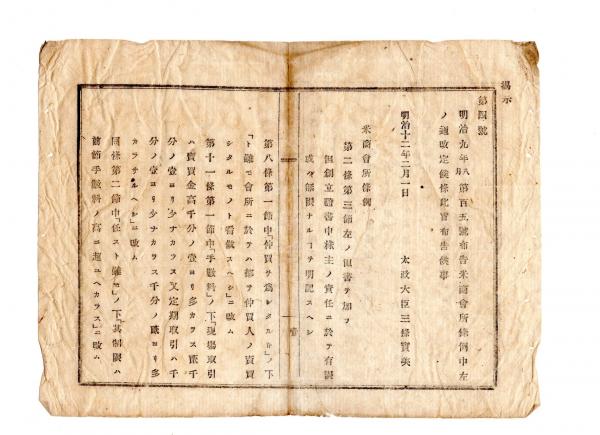 揭示
第四號
明治九年八月第百五號布告米商會所條例中左
ノ通改定候條此旨布告候事
明治十二年二月一日
太政大臣三條實美
米商會所條例
第二條第三節左ノ但書ヲ加フ
但創立證書中株主ノ責任ニ於テ有限
或ハ無限ナルヿヲ明記スヘシ
第八條第一節中「仲買ヲ爲シタル片」ノ下
「ト雖モ會所ニ於テハ都テ仲買人ノ賣買
シタルモノト看做スヘシ」ニ改ム
第十一條第一節中「手數料」ノ下「現場取引
ハ賣買金高千分ノ壹ヨリ多カラス
分ノ壹ヨリ少ナカラス又定期取引ハ千
分ノ壹ヨリ少ナカラス千分ノ ヨリ多
カラサルヘシ」ニ改ム
同條第二節中「任スト雖モ」ノ下「其制限ハ
前節手數料ノ高ニ超ユヘカラス」ニ改ム
壹